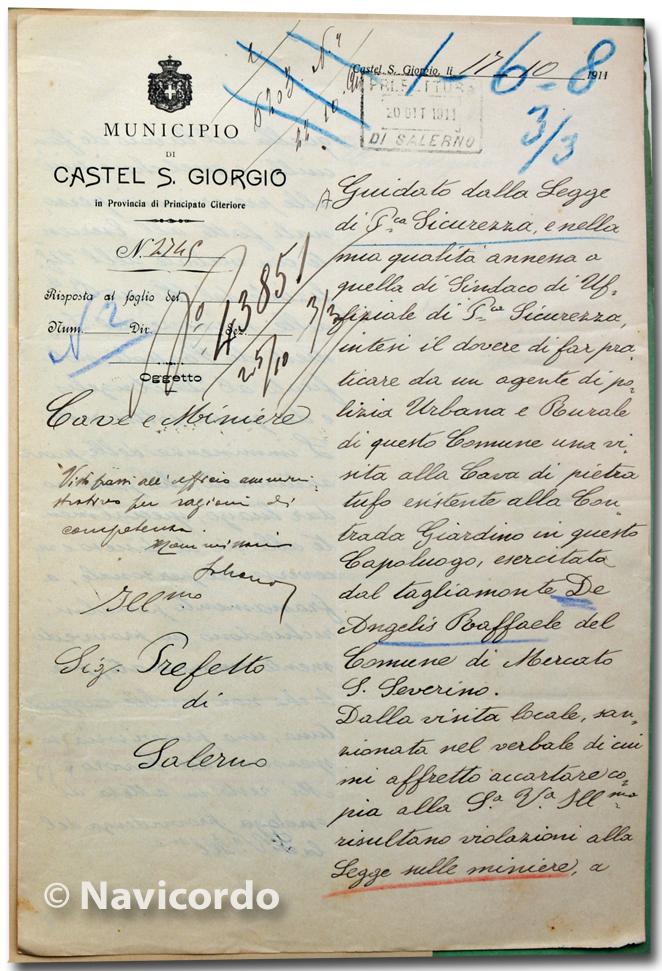 Castel S. Giorgio, li 17-10 1911
1-6-8
3/3
PREFETTURA
20 OTT 1911
DI SALERNO
MUNICIPIO
DI
CASTEL S. GIORGIO
in Provincia di Principato Citeriore
N. 2745
Risposta al foglio del
Num. Div. Sez.
N 2
43851
3/3
25/10
Oggetto
Cave e Miniere
all'ufficio ammini-
strativo per ragioni di
competenza.
Ill.mo
Sig. Prefetto
di
Salerno
Guidato dalla Legge
di P.ca Sicurezza, e nella
mia qualità annessa a
quella di Sindaco di Uf-
fiziale di P.ca Sicurezza,
intesi il dovere di far pra-
ticare da un agente di po-
lizia Urbana e Rurale
di questo Comune una vi-
sita alla Cava di pietra
tufo esistente alla Con-
trada Giardino in questo
Capoluogo, esercitata
dal tagliamonte De
Angelis Raffaele del
Comune di Mercato
S. Severino.
Dalla visita locale, san-
zionata nel verbale di cui
mi affretto accartare co-
pia alla S.a V.a Ill.ma
risultano violazioni alla
Legge sulle miniere, a
© Navicordo